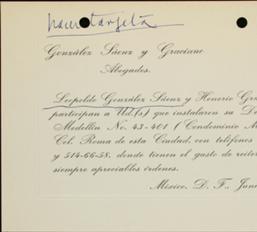 hacer tarjeta
González Sáenz y Graciano
Abogados.
Leopoldo González Sáenz y Honorio Gra
participan a Ud.(s) que instalaron su De
Medellín No. 43-401 ( Condominio A
Col. Roma de esta Ciudad, con teléfonos
y 514-66-58, donde tienen el gusto de reiter
siempre apreciables órdenes.
México, D. F., Jun